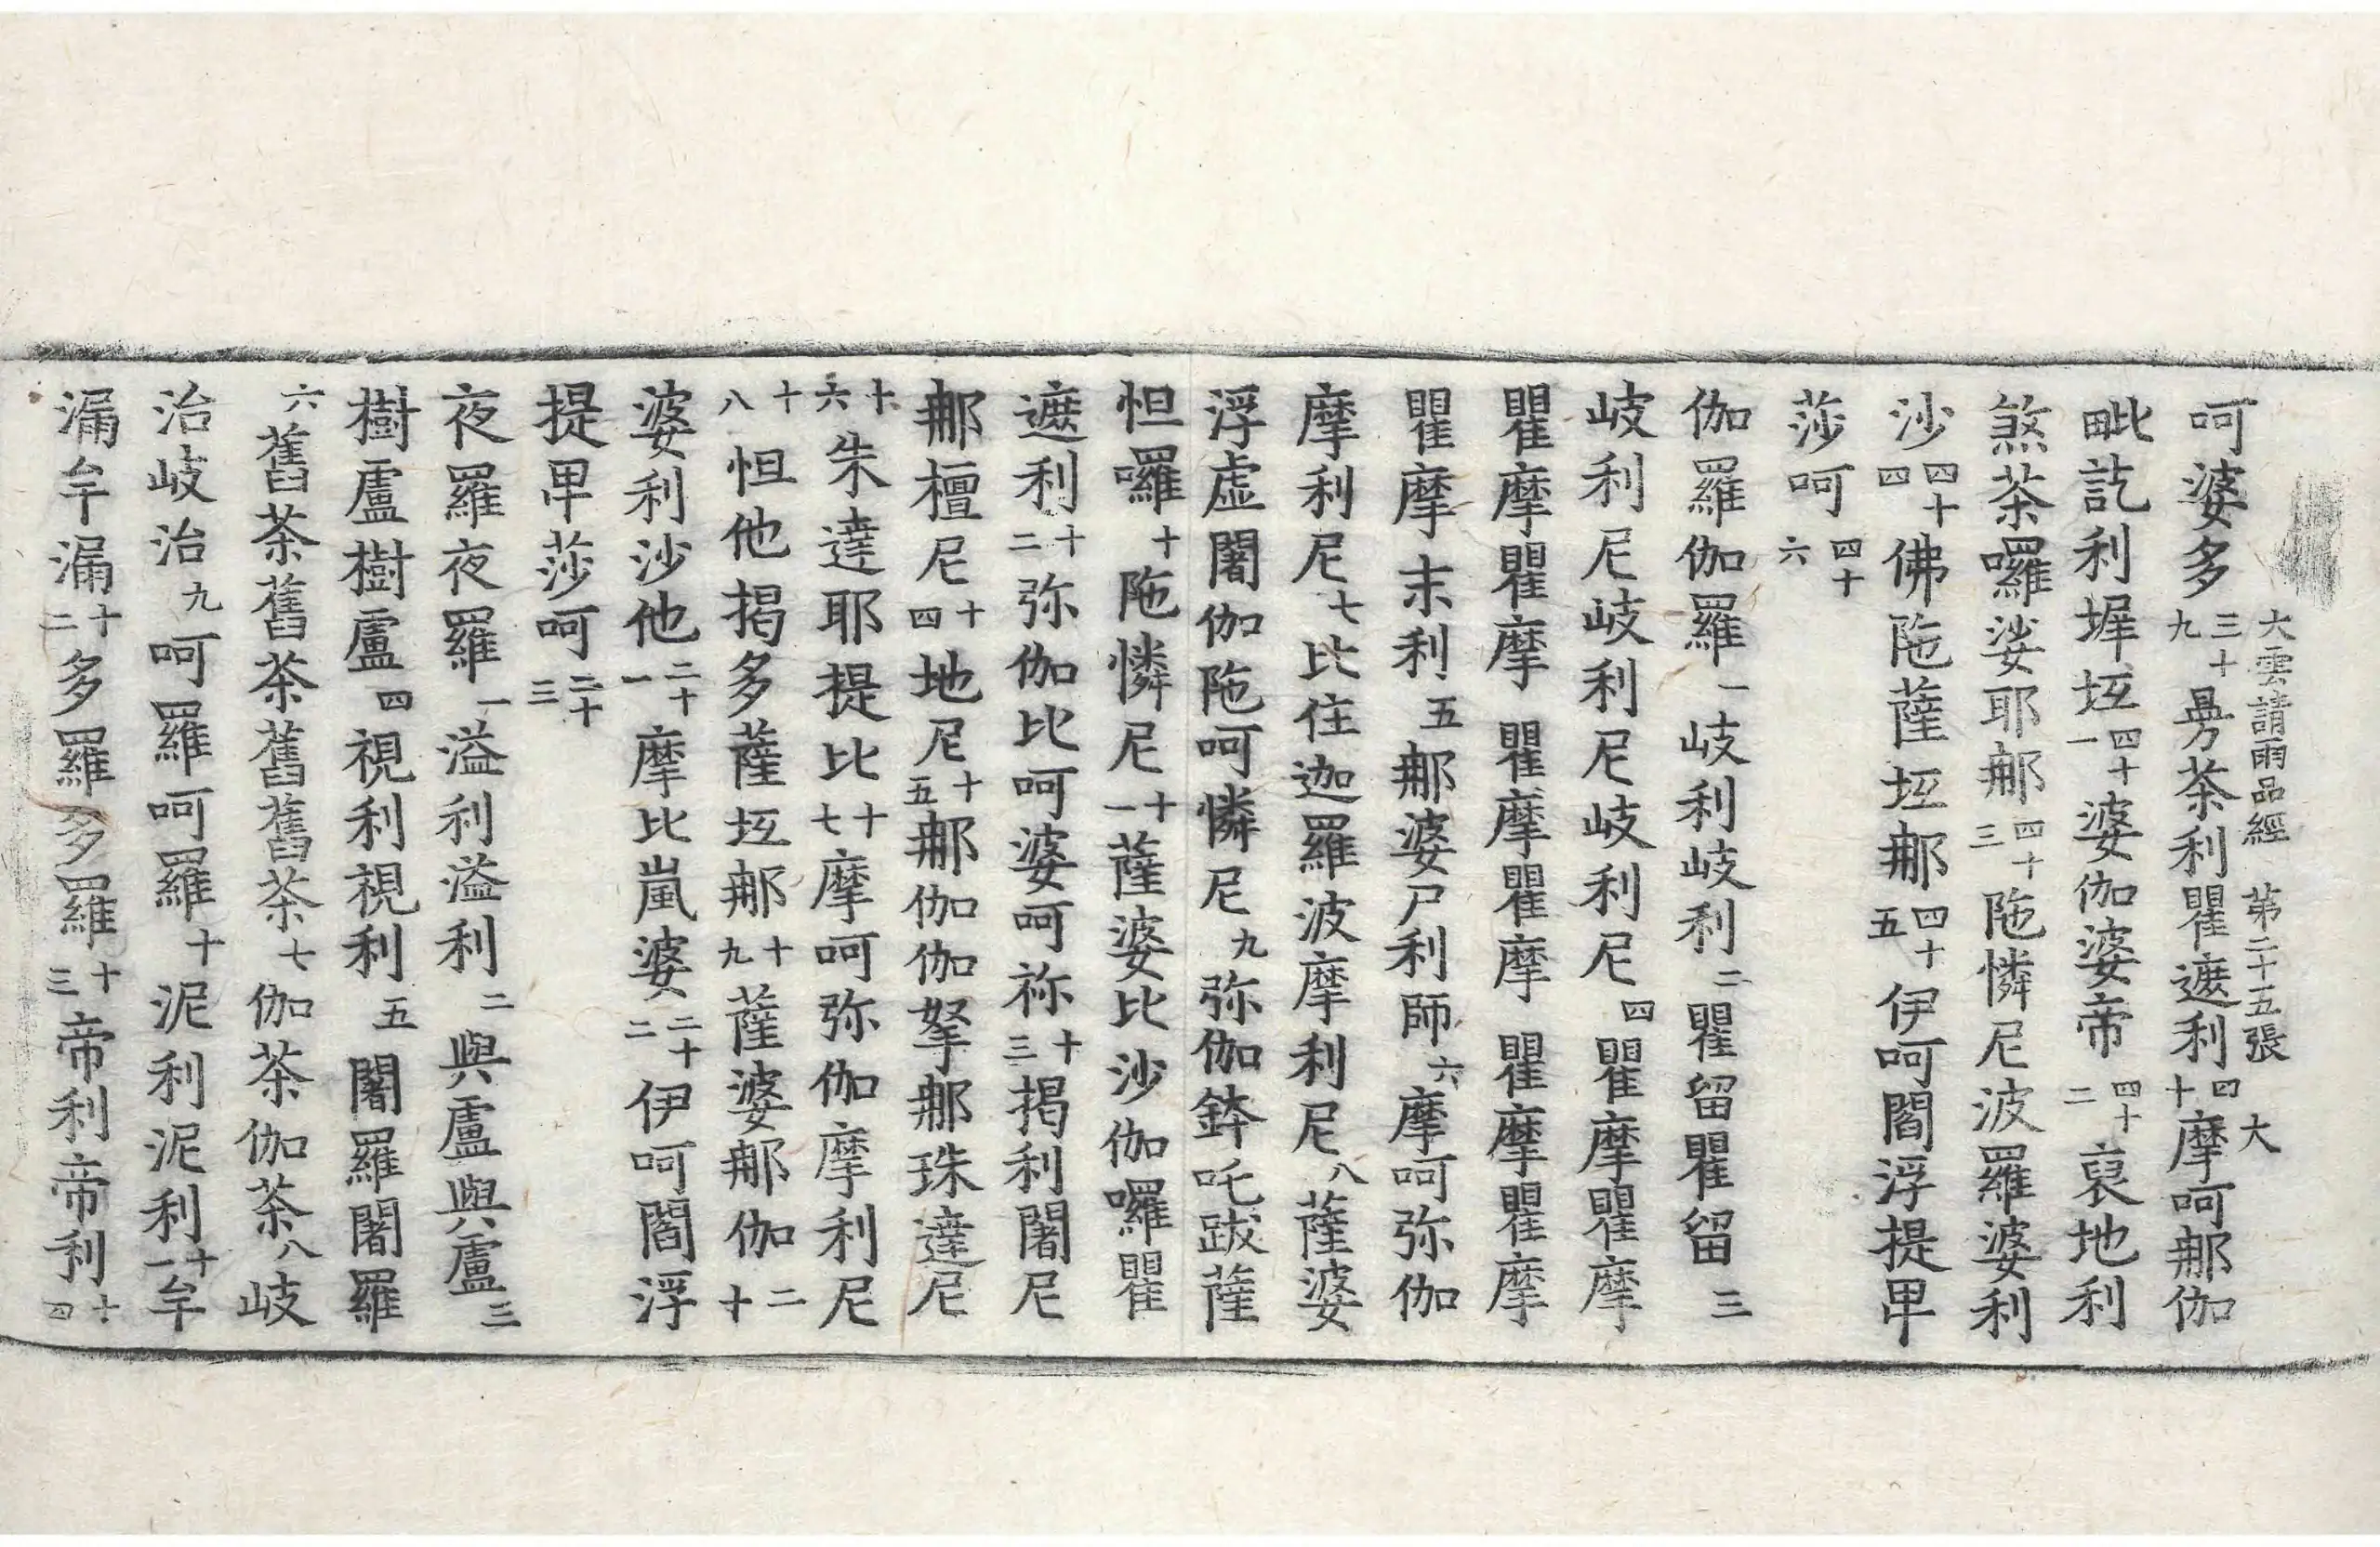 大雲請雨品經 第二十五張 大
呵婆多三十九㝵茶利瞿遮利四十摩呵那伽
毗訖利墀坻四十一婆伽婆帝四十二裒地利
煞茶囉娑耶那四十三陁憐尼波羅婆利
沙四十四佛陁薩坻那四十五伊呵閻浮提畀
莎呵四十六
伽羅伽羅一岐利岐利二瞿留瞿留三
岐利尼岐利尼岐利尼四瞿摩瞿摩
瞿摩瞿摩瞿摩瞿摩瞿摩瞿摩
瞿摩末利五那婆尸利師六摩呵弥伽
摩利尼七比住迦羅波摩利尼八薩婆
浮虛闍伽陁呵憐尼九弥伽鉢吒跋薩
怛囉十陁憐尼十一薩婆比沙伽囉瞿
遮利十二弥伽比呵婆呵祢十三揭利闍尼
那檀尼十四地尼十五那伽伽拏那珠達尼
十六朱達耶提比十七摩呵弥伽摩利尼
十八怛他揭多薩坻那十九薩婆那伽二十
婆利沙他二十一摩比嵐婆二十二伊呵閻浮
提畀莎呵二十三
夜羅夜羅一溢利溢利二與盧與盧三
樹盧樹盧四視利視利五闍羅闍羅
六舊茶舊茶舊舊茶七伽茶伽茶八岐
治岐治九呵羅呵羅十泥利泥利十一牟
漏牟漏十二多羅多羅十三帝利帝利十四